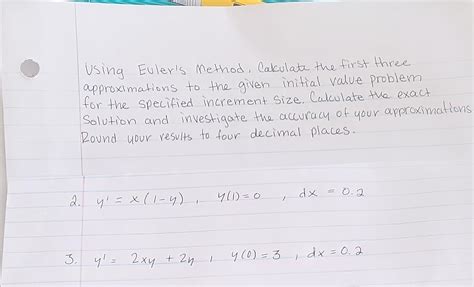 Using Euler's Method, Calculate the first three
approximations to the given initial value problem
for the specified increment size. Calculate the exact
Solution and investigate the accuracy of your approximations.
Round your results to four decimal places.
2. y' = x(1-y), y(1)=0, dx = 0.2
3. y' = 2xy + 2y, y(0)=3, dx=0.2